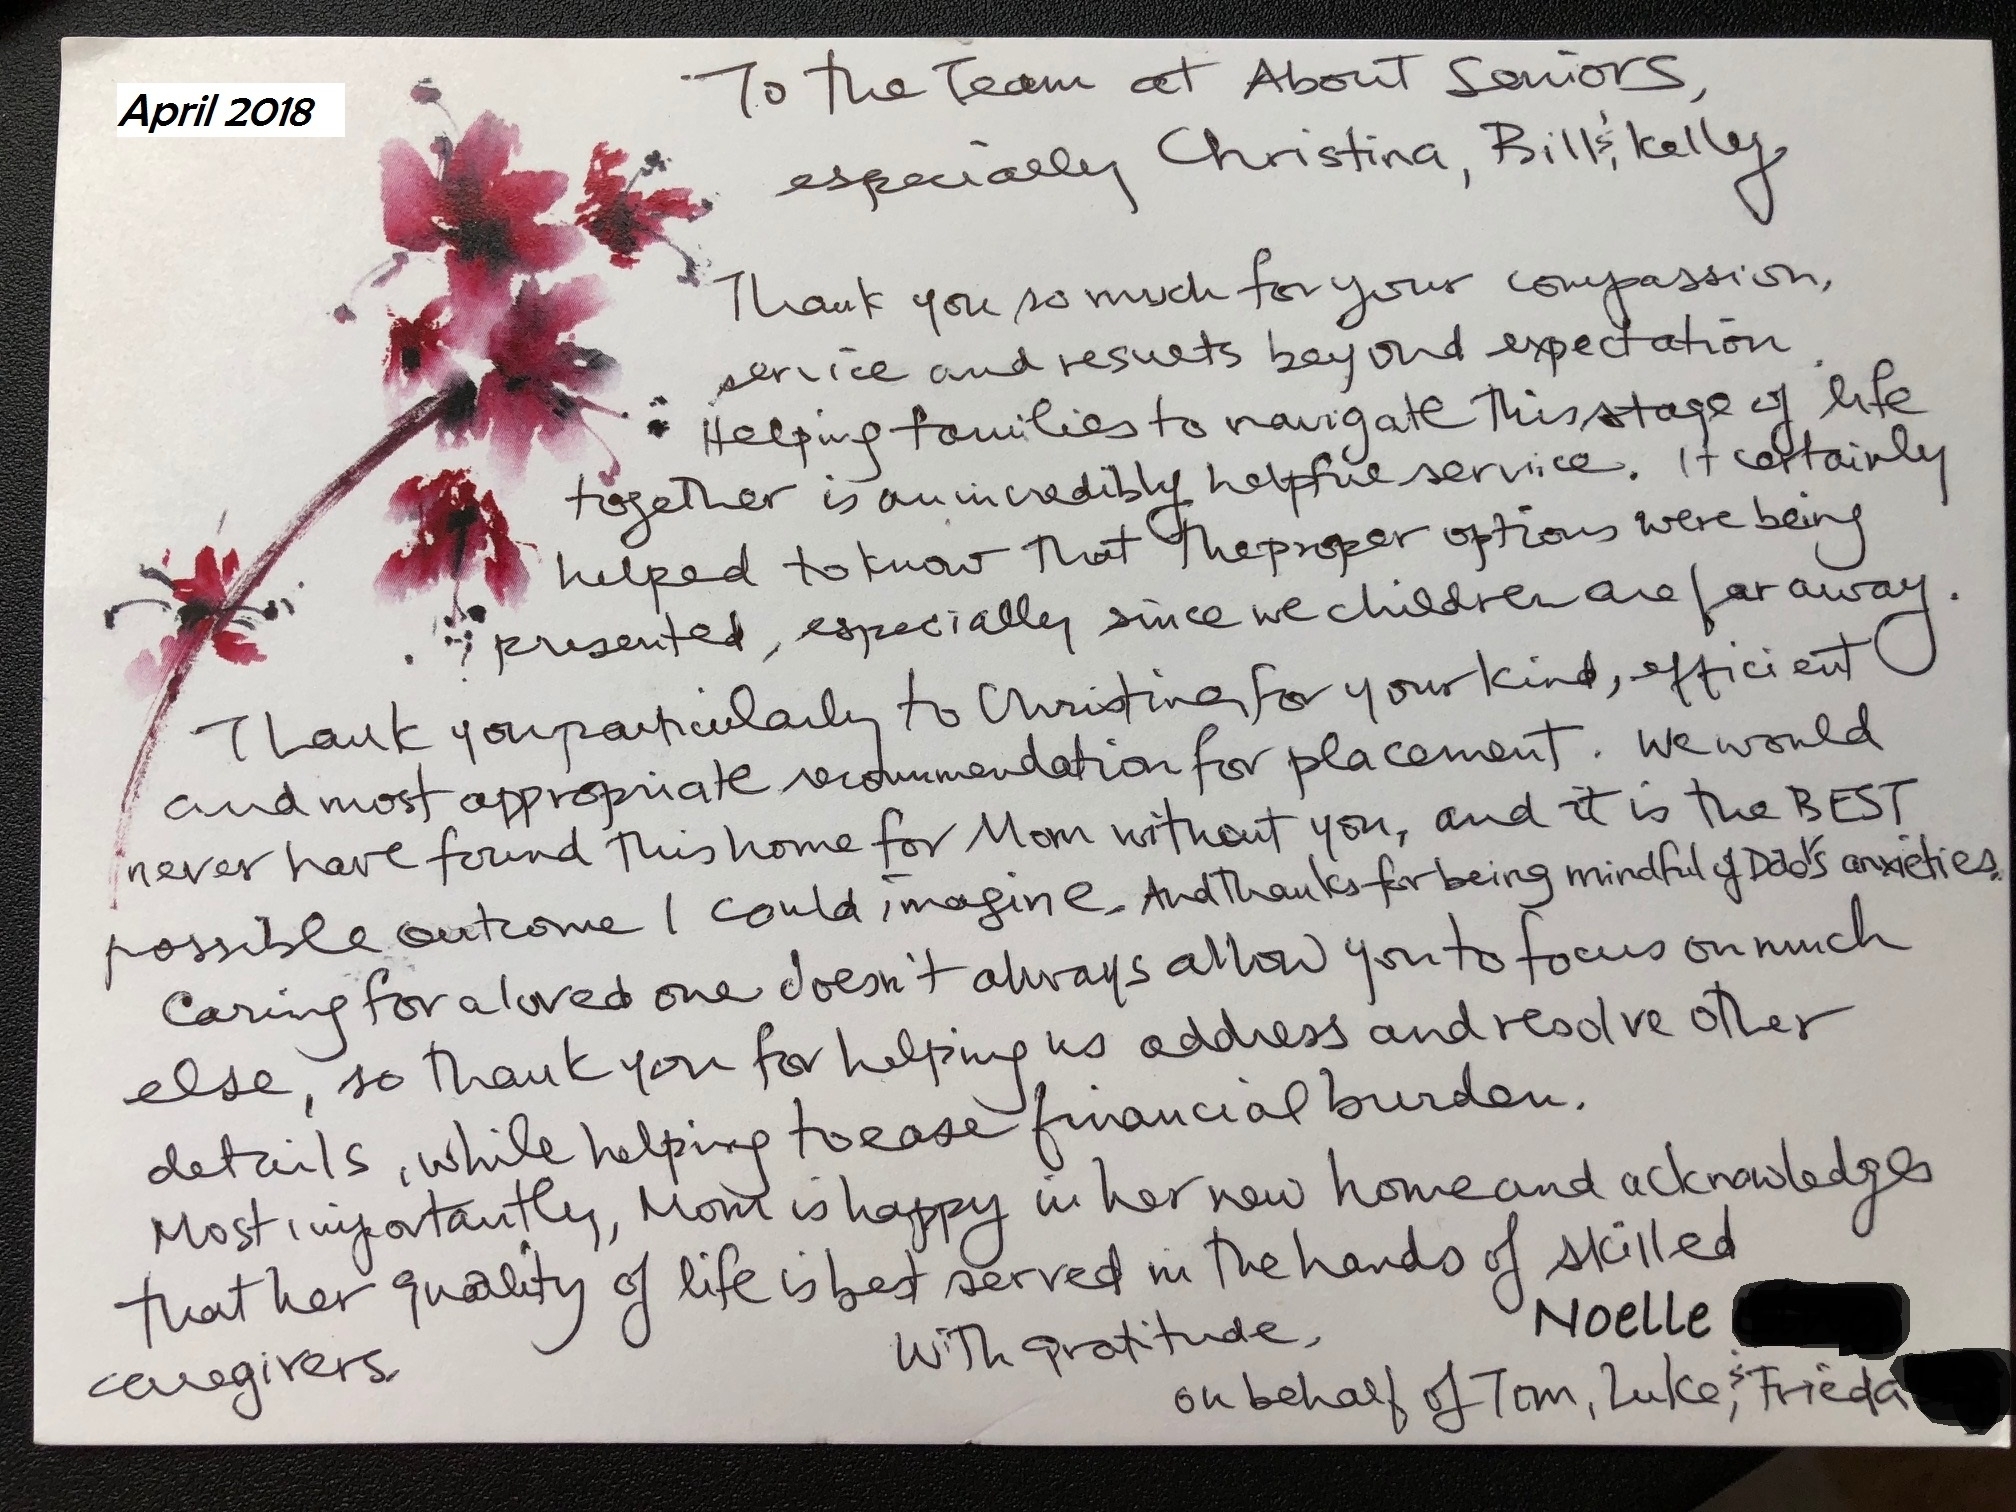 April 2018
To the Team at About Seniors,
especially Christina, Bill, & Kelly,
Thank you so much for your compassion,
service and results beyond expectation.
Helping families to navigate this stage of life
together is an incredibly helpful service. It certainly
helped to know that the proper options were being
presented, especially since we children are far away.
Thank you particularly to Christina, for your kind, efficient
and most appropriate recommendation for placement. We would
never have found this home for Mom without you, and it is the BEST
possible outcome I could imagine. And thanks for being mindful of Dad's anxieties.
Caring for a loved one doesn't always allow you to focus on much
else, so thank you for helping us address and resolve other
details, while helping to ease financial burden.
Most importantly, Mom is happy in her new home and acknowledges
that her quality of life is best served in the hands of skilled
caregivers.
With gratitude,
Noelle
on behalf of Tom, Luke, & Frieda